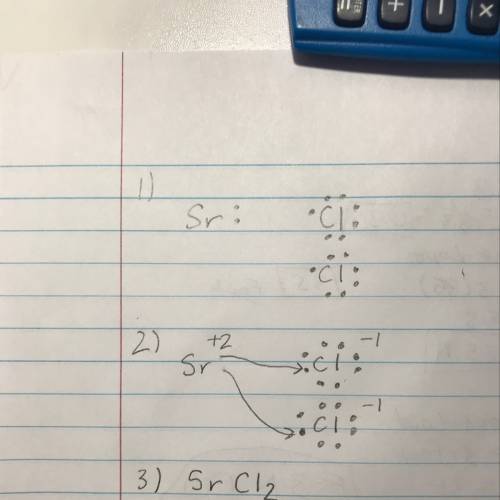 = ENTER + − ×
1)
Sr: Cl
Cl
2) Sr +2 Cl −1
Cl −1
3) SrCl₂